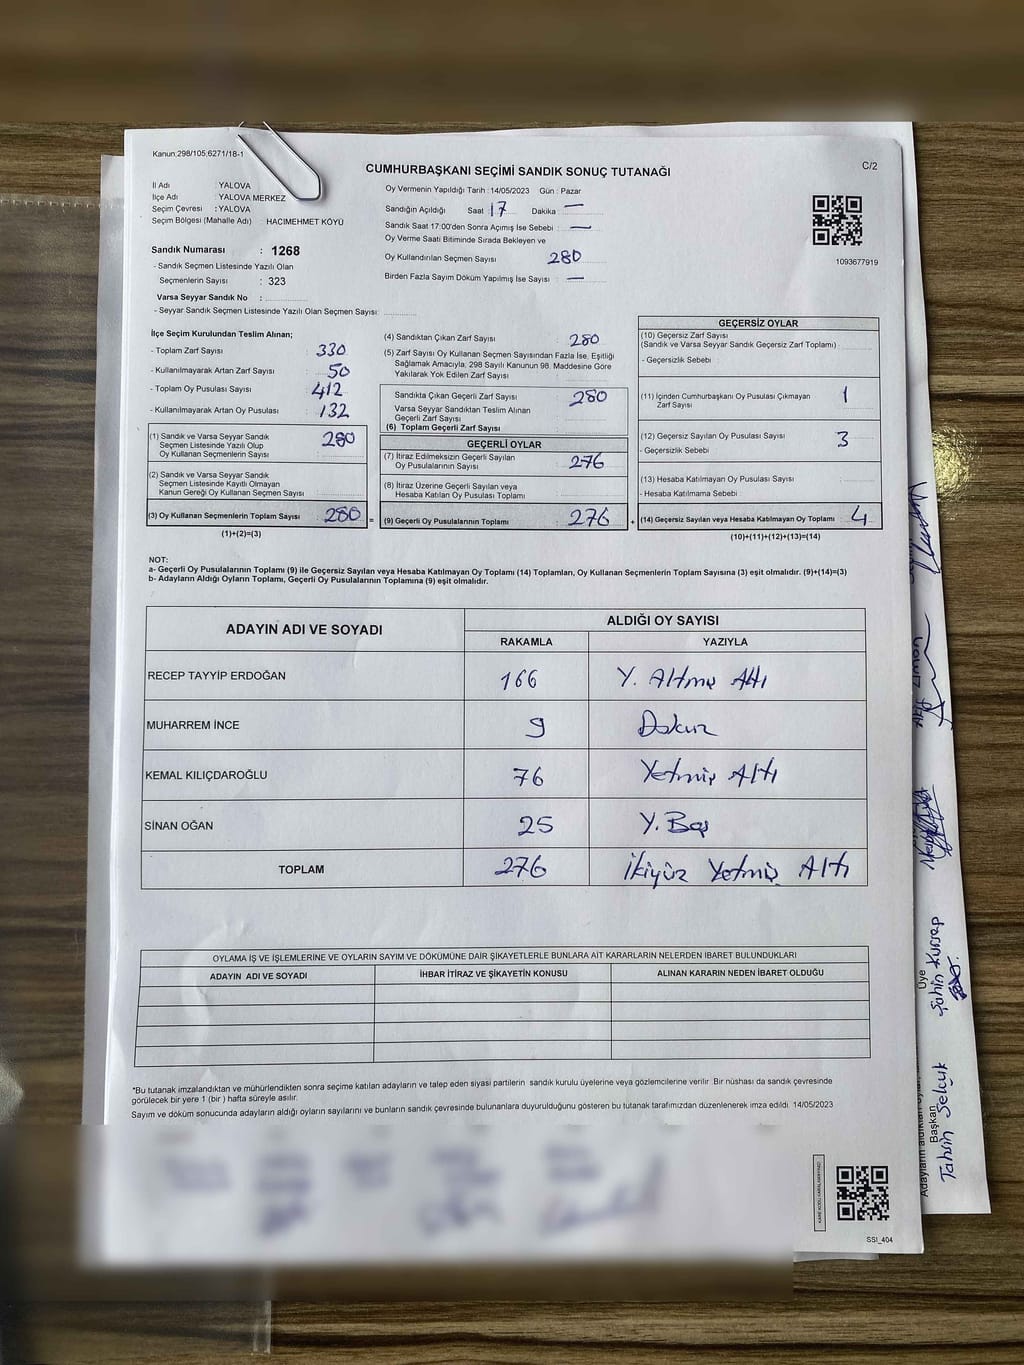 Kanun:298/105;6271/18-1
CUMHURBAŞKANI SEÇİMİ SANDIK SONUÇ TUTANAĞI
C/2
İl Adı : YALOVA
İlçe Adı : YALOVA MERKEZ
Seçim Çevresi : YALOVA
Seçim Bölgesi (Mahalle Adı) : HACIMEHMET KÖYÜ
Sandık Numarası : 1268
- Sandık Seçmen Listesinde Yazılı Olan
Seçmenlerin Sayısı : 323
Varsa Seyyar Sandık No :
- Seyyar Sandık Seçmen Listesinde Yazılı Olan Seçmen Sayısı:
Oy Vermenin Yapıldığı Tarih : 14/05/2023 Gün : Pazar
Sandığın Açıldığı Saat 17 Dakika —
Sandık Saat 17:00'den Sonra Açımış İse Sebebi : —
Oy Verme Saati Bitiminde Sırada Bekleyen ve
Oy Kullandırılan Seçmen Sayısı 280
Birden Fazla Sayım Döküm Yapılmış İse Sayısı : —
1093677919
İlçe Seçim Kurulundan Teslim Alınan;
- Toplam Zarf Sayısı : 330
- Kullanılmayarak Artan Zarf Sayısı : 50
- Toplam Oy Pusulası Sayısı : 412
- Kullanılmayarak Artan Oy Pusulası : 132
(1) Sandık ve Varsa Seyyar Sandık
Seçmen Listesinde Yazılı Olup
Oy Kullanan Seçmenlerin Sayısı : 280
(2) Sandık ve Varsa Seyyar Sandık
Seçmen Listesinde Kayıtlı Olmayan
Kanun Gereği Oy Kullanan Seçmen Sayısı :
(3) Oy Kullanan Seçmenlerin Toplam Sayısı : 280 =
(1)+(2)=(3)
(4) Sandıktan Çıkan Zarf Sayısı : 280
(5) Zarf Sayısı Oy Kullanan Seçmen Sayısından Fazla İse, Eşitliği
Sağlamak Amacıyla; 298 Sayılı Kanunun 98. Maddesine Göre
Yakılarak Yok Edilen Zarf Sayısı :
Sandıkta Çıkan Geçerli Zarf Sayısı : 280
Varsa Seyyar Sandıktan Teslim Alınan
Geçerli Zarf Sayısı :
(6) Toplam Geçerli Zarf Sayısı :
GEÇERLİ OYLAR
(7) İtiraz Edilmeksizin Geçerli Sayılan
Oy Pusulalarının Sayısı : 276
(8) İtiraz Üzerine Geçerli Sayılan veya
Hesaba Katılan Oy Pusulası Toplamı :
(9) Geçerli Oy Pusulalarının Toplamı : 276 +
GEÇERSİZ OYLAR
(10) Geçersiz Zarf Sayısı
(Sandık ve Varsa Seyyar Sandık Geçersiz Zarf Toplamı) :
- Geçersizlik Sebebi :
(11) İçinden Cumhurbaşkanı Oy Pusulası Çıkmayan
Zarf Sayısı : 1
(12) Geçersiz Sayılan Oy Pusulası Sayısı : 3
- Geçersizlik Sebebi :
(13) Hesaba Katılmayan Oy Pusulası Sayısı :
- Hesaba Katılmama Sebebi :
(14) Geçersiz Sayılan veya Hesaba Katılmayan Oy Toplamı : 4
(10)+(11)+(12)+(13)=(14)
NOT:
a- Geçerli Oy Pusulalarının Toplamı (9) ile Geçersiz Sayılan veya Hesaba Katılmayan Oy Toplamı (14) Toplamları, Oy Kullanan Seçmenlerin Toplam Sayısına (3) eşit olmalıdır. (9)+(14)=(3)
b- Adayların Aldığı Oyların Toplamı, Geçerli Oy Pusulalarının Toplamına (9) eşit olmalıdır.
ADAYIN ADI VE SOYADI
ALDIĞI OY SAYISI
RAKAMLA YAZIYLA
RECEP TAYYİP ERDOĞAN 166 Y. Altmış Altı
MUHARREM İNCE 9 Dokuz
KEMAL KILIÇDAROĞLU 76 Yetmiş Altı
SİNAN OĞAN 25 Y. Beş
TOPLAM 276 İkiyüz Yetmiş Altı
OYLAMA İŞ VE İŞLEMLERİNE VE OYLARIN SAYIM VE DÖKÜMÜNE DAİR ŞİKAYETLERLE BUNLARA AİT KARARLARIN NELERDEN İBARET BULUNDUKLARI
ADAYIN ADI VE SOYADI İHBAR İTİRAZ VE ŞİKAYETİN KONUSU ALINAN KARARIN NEDEN İBARET OLDUĞU
*Bu tutanak imzalandıktan ve mühürlendikten sonra seçime katılan adayların ve talep eden siyasi partilerin sandık kurulu üyelerine veya gözlemcilerine verilir. Bir nüshası da sandık çevresinde
görülecek bir yere 1 (bir ) hafta süreyle asılır.
Sayım ve döküm sonucunda adayların aldığı oyların sayılarını ve bunların sandık çevresinde bulunanlara duyurulduğunu gösteren bu tutanak tarafımızdan düzenlenerek imza edildi. 14/05/2023
SSI_404
Üye
Şahin Kurşap
Başkan
Tahsin Selçuk